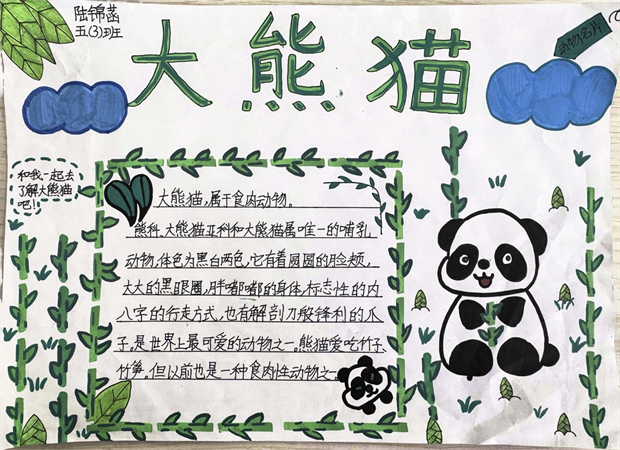 陆锦菡
五(3)班
大熊猫
动物名片
和我一起去
了解大熊猫
吧!
大熊猫,属于食肉动物。
熊科、大熊猫亚科和大熊猫属唯一的哺乳
动物,体色为黑白两色,它有着圆圆的脸颊,
大大的黑眼圈,胖嘟嘟的身体,标志性的内
八字的行走方式,也有解剖刀般锋利的爪
子。是世界上最可爱的动物之一。熊猫爱吃竹子、
竹笋。但以前也是一种食肉性动物之一。